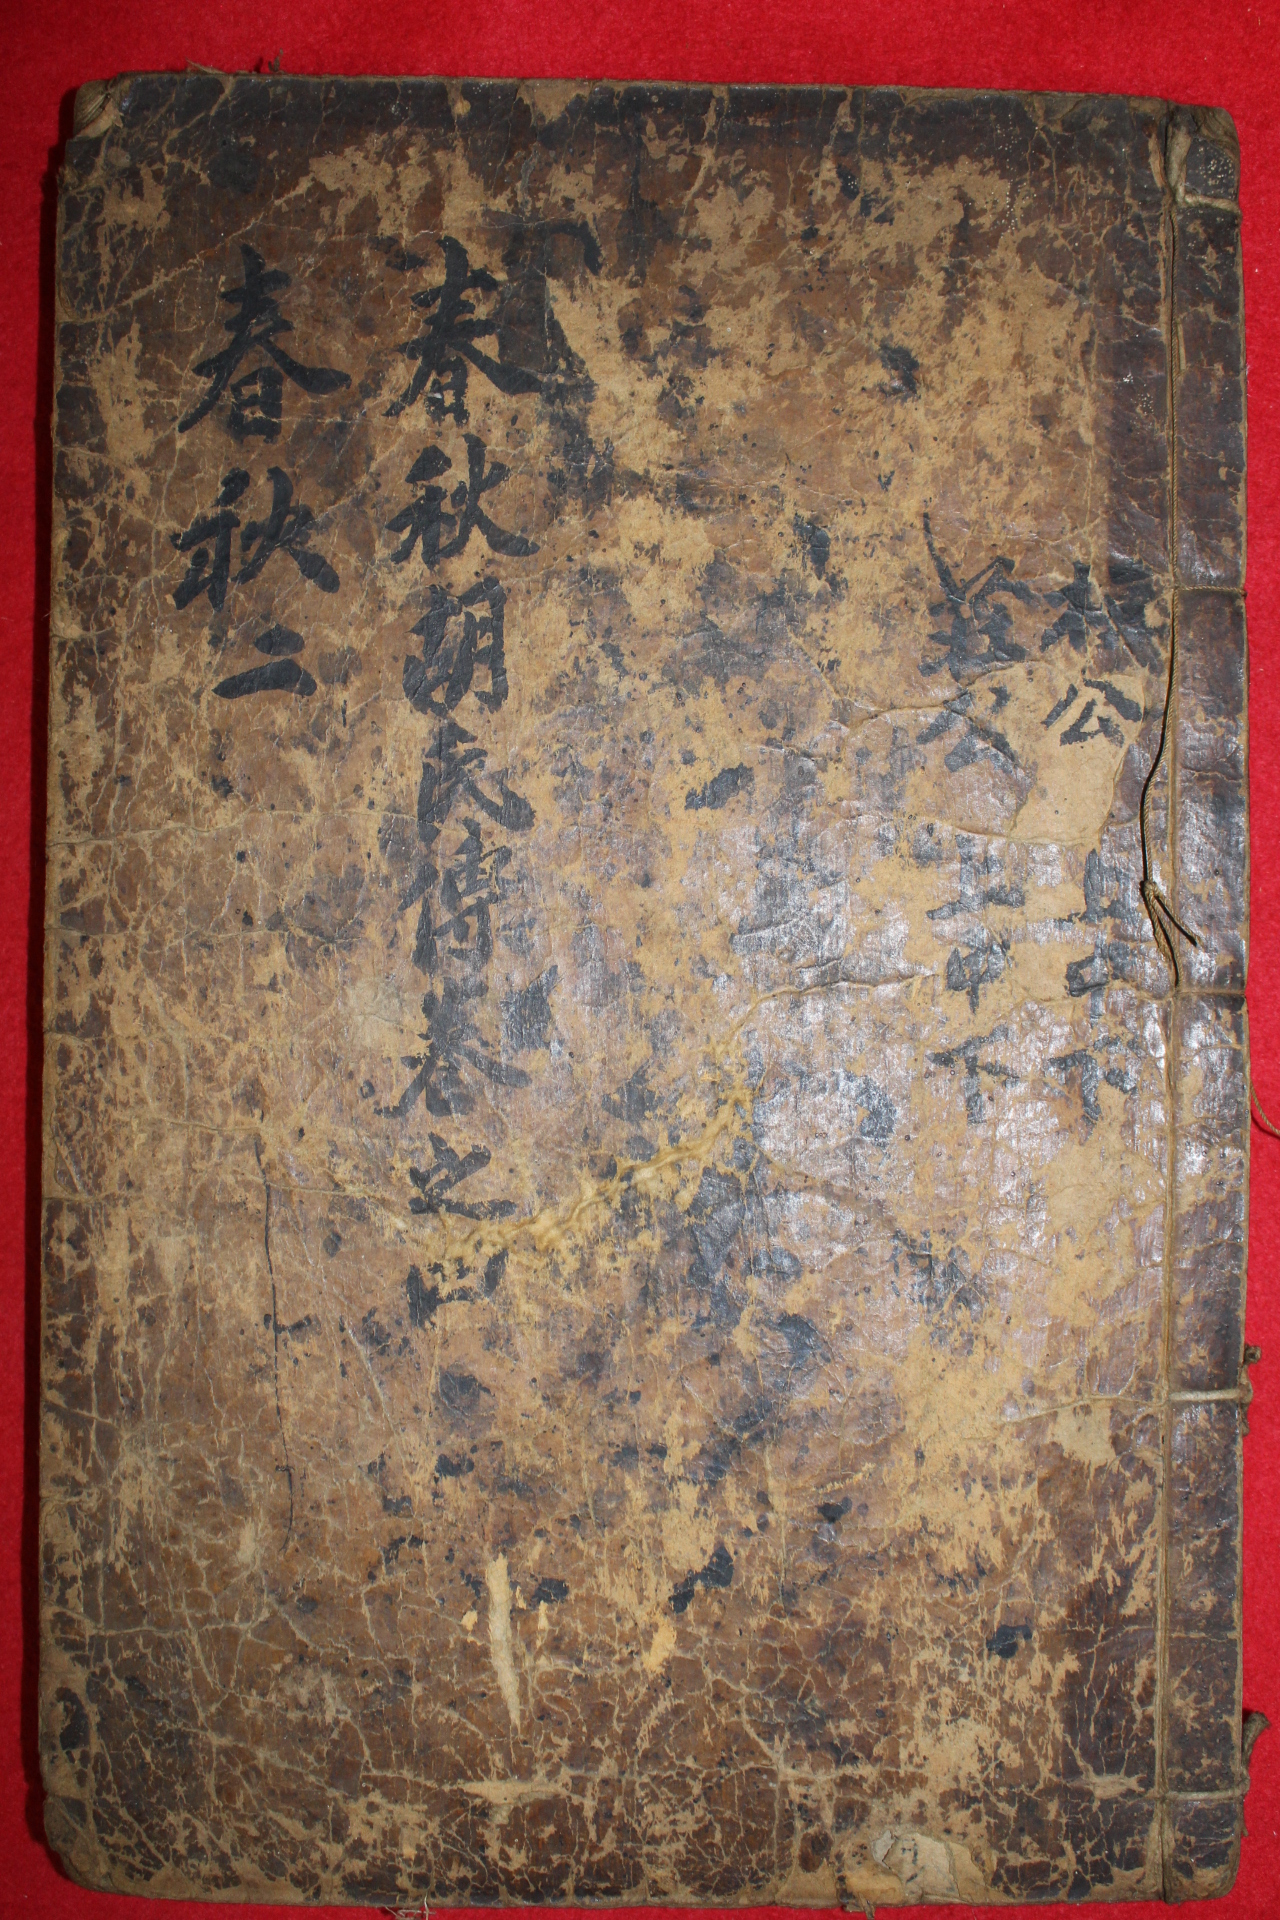 桓公 上中下
莊公 上中下
春秋胡氏傳卷之四
春秋二